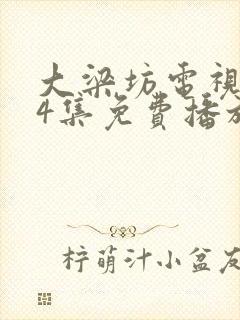 大梁坊電視
4集免費播放
柠萌汁小盆友